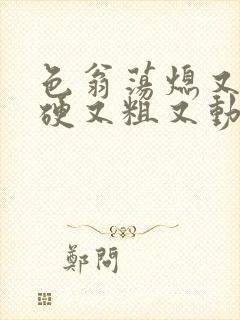 色翁荡熄又
硬又粗又動
鄭問